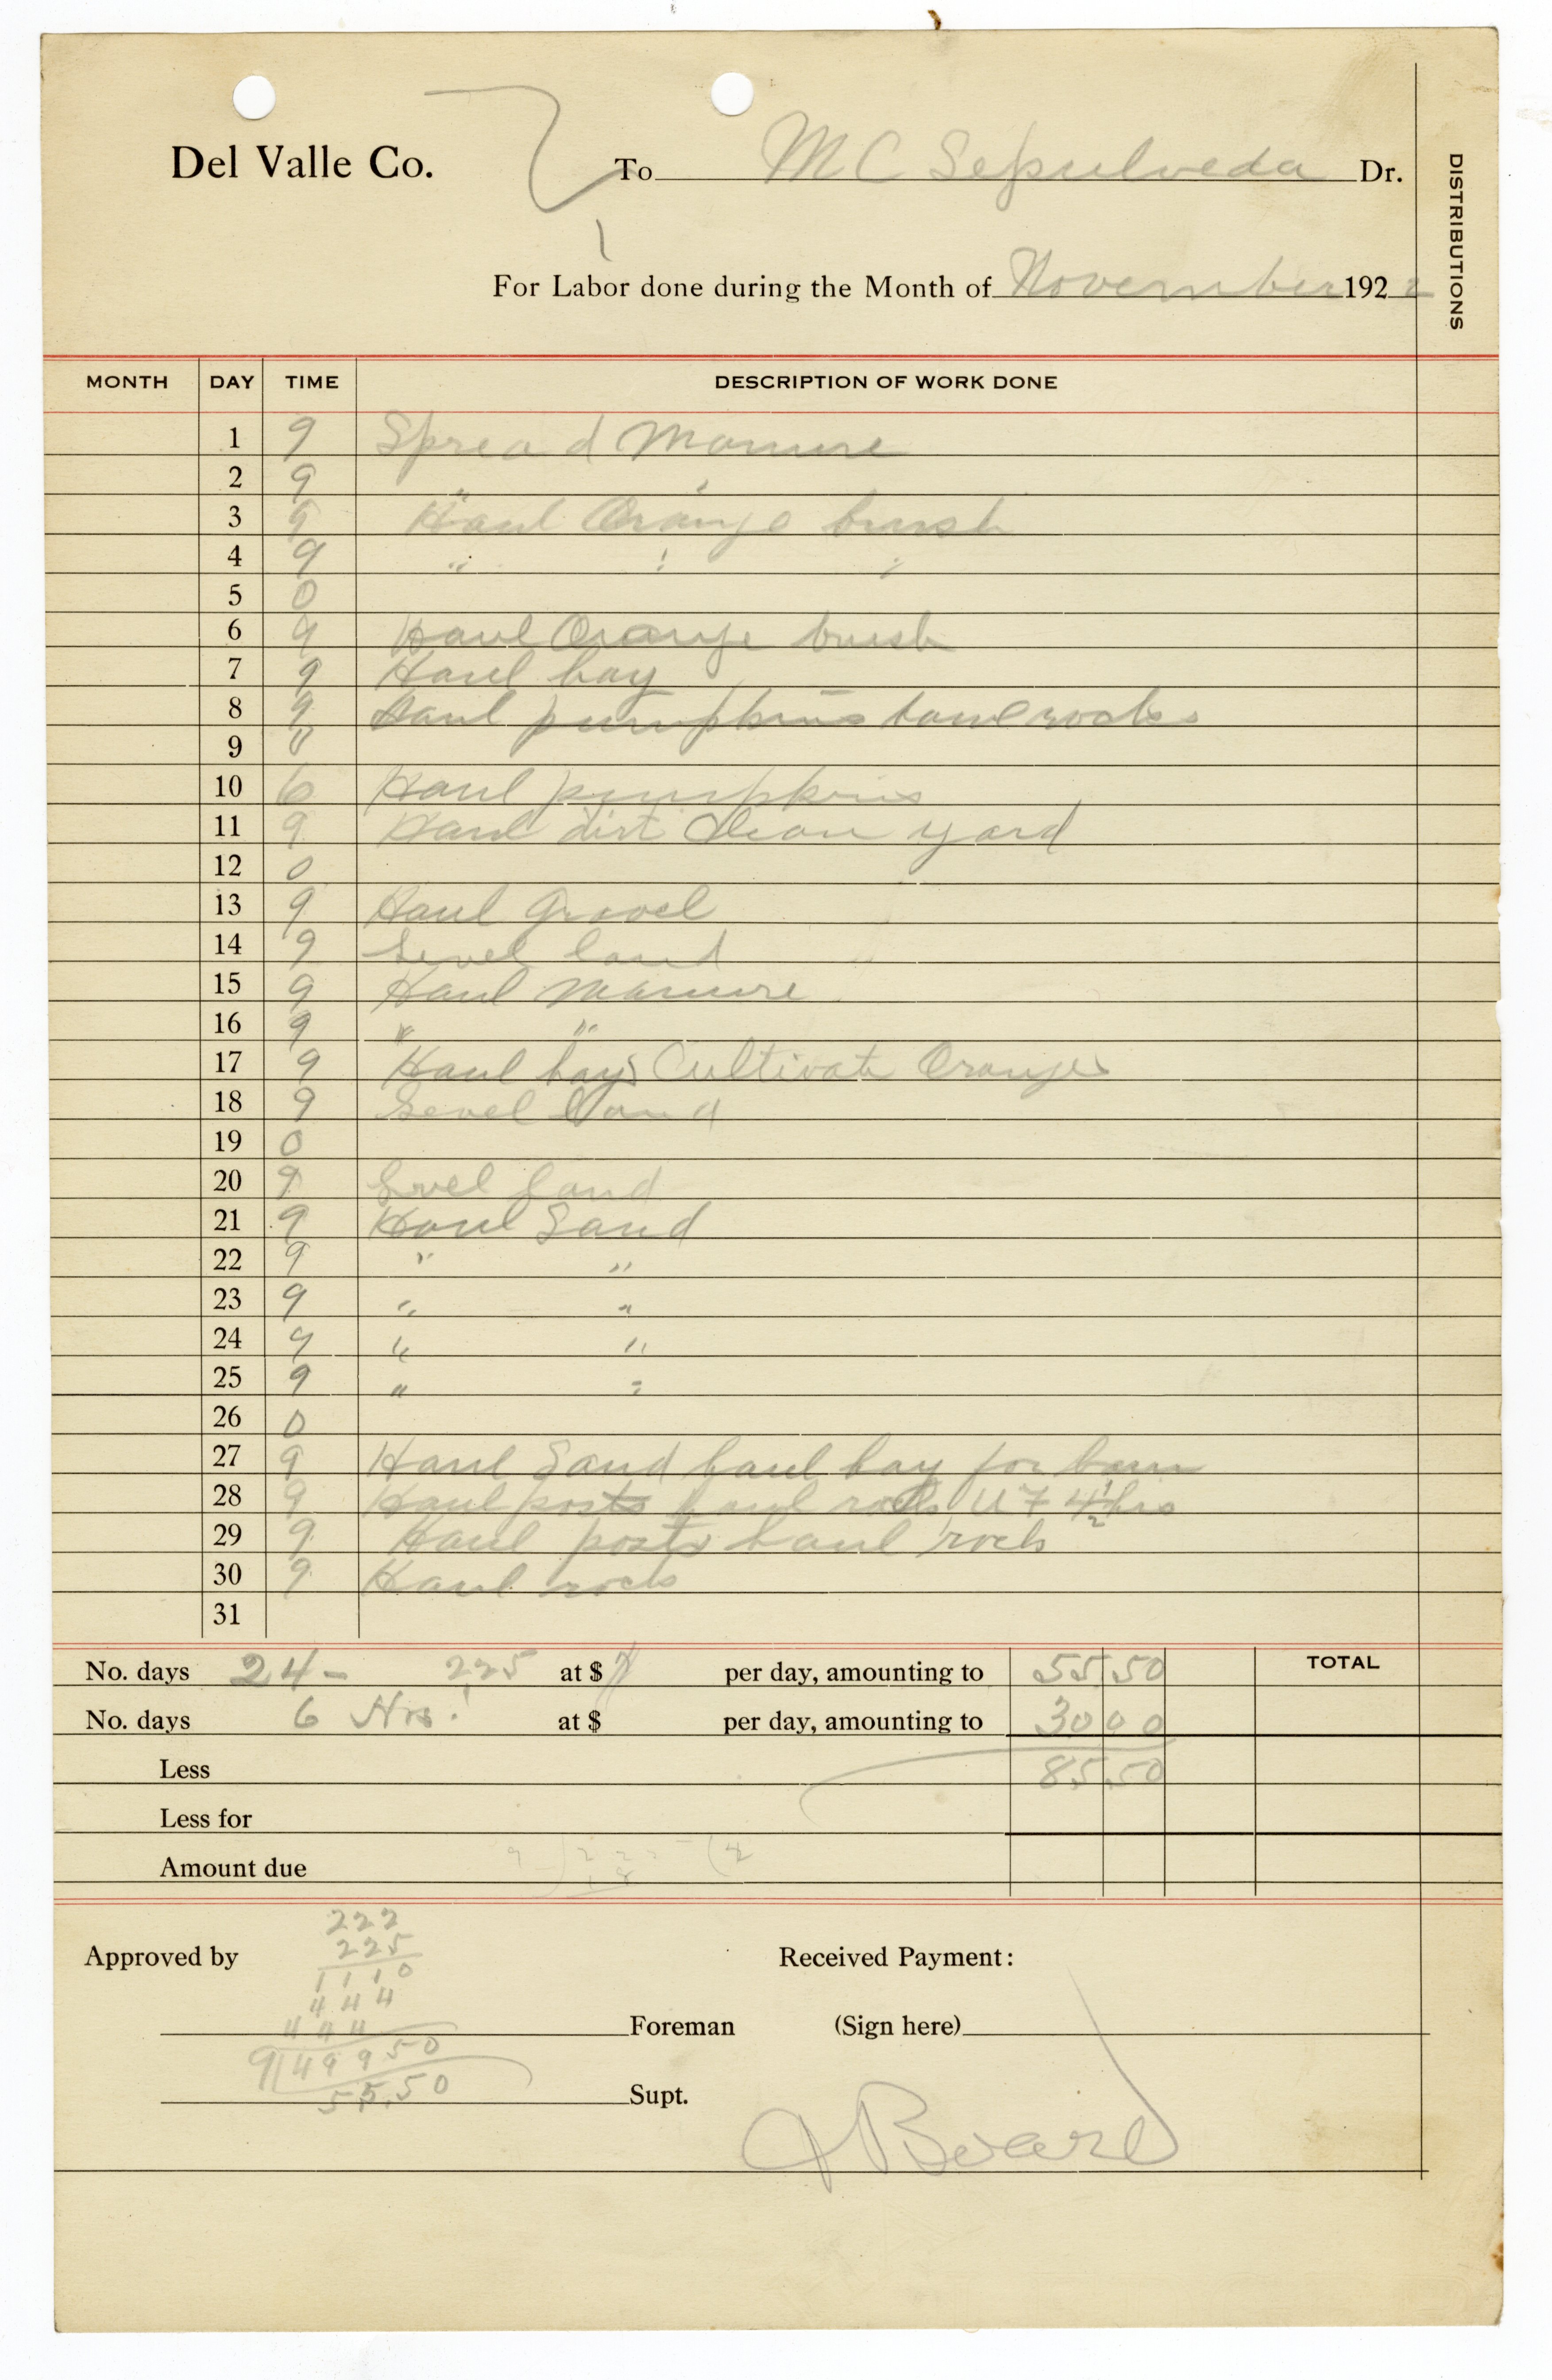 Del Valle Co. To M C Sepulveda Dr.
DISTRIBUTIONS
For Labor done during the Month of November 1922
MONTH DAY TIME DESCRIPTION OF WORK DONE
1 9 Spread Manure
2 9 " "
3 9 Haul Orange brush
4 9 " " "
5 0
6 9 Haul Orange brush
7 9 Haul hay
8 9 Haul pumpkins haul rocks
9 0
10 6 Haul pumpkins
11 9 Haul dirt Clean yard
12 0
13 9 Haul Gravel
14 9 Level land
15 9 Haul Manure
16 9 " "
17 9 Haul hay Cultivate Oranges
18 9 Level land
19 0
20 9 Level land
21 9 Haul Sand
22 9 " "
23 9 " "
24 9 " "
25 9 " "
26 0
27 9 Haul Sand haul hay for barn
28 9 Haul posts haul rocks U F 4½ hrs
29 9 Haul posts haul rocks
30 9 Haul rocks
31
No. days 24 - 225 at $ per day, amounting to 55 50 TOTAL
No. days 6 Hrs. at $ per day, amounting to 30 00
Less 85.50
Less for
Amount due 9 ) 222 (2
18
222
Approved by 225 Received Payment:
1110
444
444 Foreman (Sign here)
9 49950
55.50 Supt.